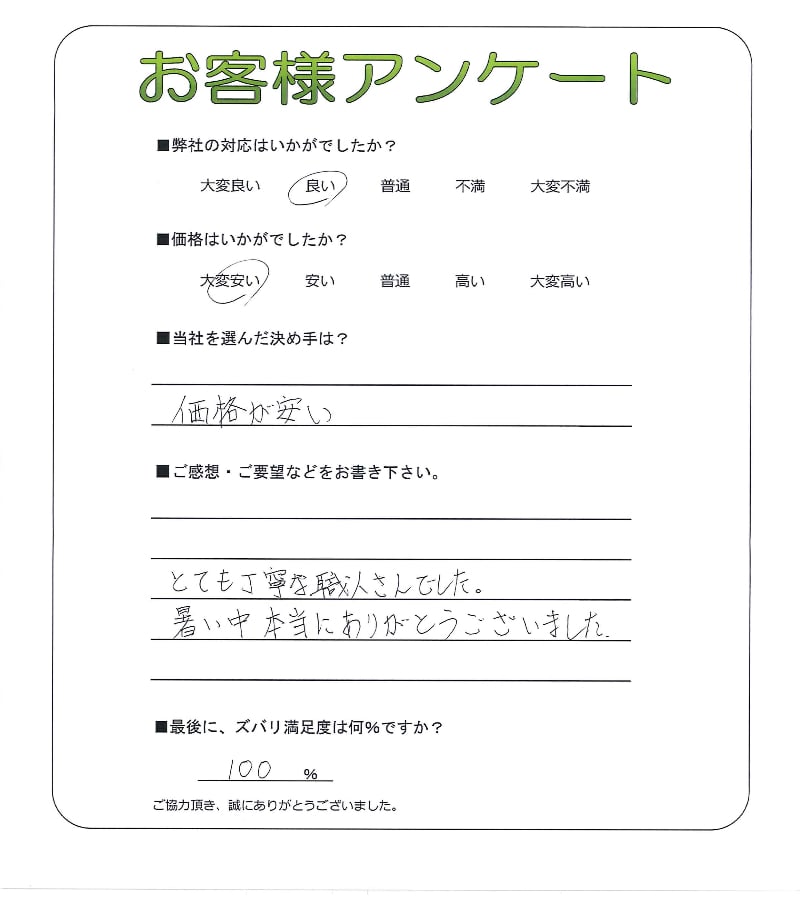 お客様アンケート
■弊社の対応はいかがでしたか？
大変良い 良い 普通 不満 大変不満
■価格はいかがでしたか？
大変安い 安い 普通 高い 大変高い
■当社を選んだ決め手は？
価格が安い
■ご感想・ご要望などをお書き下さい。
とても丁寧な職人さんでした。
暑い中本当にありがとうございました.
■最後に、ズバリ満足度は何%ですか？
100 %
ご協力頂き、誠にありがとうございました。